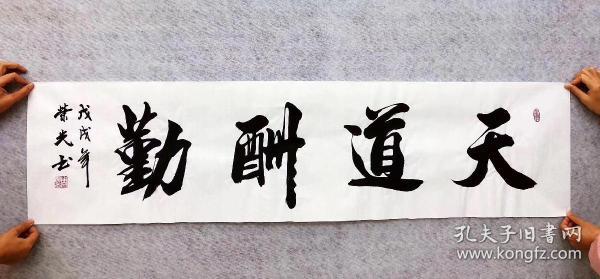 天道酬勤
戊戌年
荣光书
孔夫子旧书网
www.kongfz.com